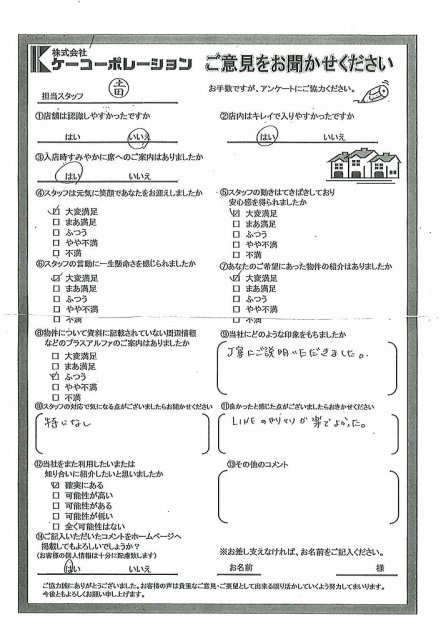 株式会社
ケーコーポレーション
ご意見をお聞かせください
担当スタッフ
お手数ですが、アンケートにご協力ください。
①店舗は認識しやすかったですか
はい いいえ
②店内はキレイで入りやすかったですか
はい いいえ
③入店時すみやかに席へのご案内はありましたか
はい いいえ
④スタッフは元気に笑顔であなたをお迎えしましたか
大変満足
まあ満足
ふつう
やや不満
不満
⑤スタッフの動きはてきぱきしており
安心感を得られましたか
大変満足
まあ満足
ふつう
やや不満
不満
⑥スタッフの言動に一生懸命さを感じられましたか
大変満足
まあ満足
ふつう
やや不満
不満
⑦あなたのご希望にあった物件の紹介はありましたか
大変満足
まあ満足
ふつう
やや不満
不満
⑧物件について資料に記載されていない周辺情報
などのプラスアルファのご案内はありましたか
大変満足
まあ満足
ふつう
やや不満
不満
⑨当社にどのような印象をもちましたか
丁寧にご説明いただきました。
⑩スタッフの対応で気になる点がございましたらお聞かせください
特になし
⑪良かったと感じた点がございましたらおきかせください
LINEのやりとりが楽でよかった。
⑫当社をまた利用したいまたは
知り合いに紹介したいと思いましたか
確実にある
可能性が高い
可能性がある
可能性が低い
全く可能性はない
⑬その他のコメント
⑭ご記入いただいたコメントをホームページへ
掲載してもよろしいでしょうか?
(お客様の個人情報は十分に配慮致します)
はい いいえ
※お差し支えなければ、お名前をご記入ください。
お名前 様
ご協力誠にありがとうございました。お客様の声は貴重なご意見・ご要望として出来る限り活かしていくよう努力してまいります。
今後ともよろしくお願い申し上げます。